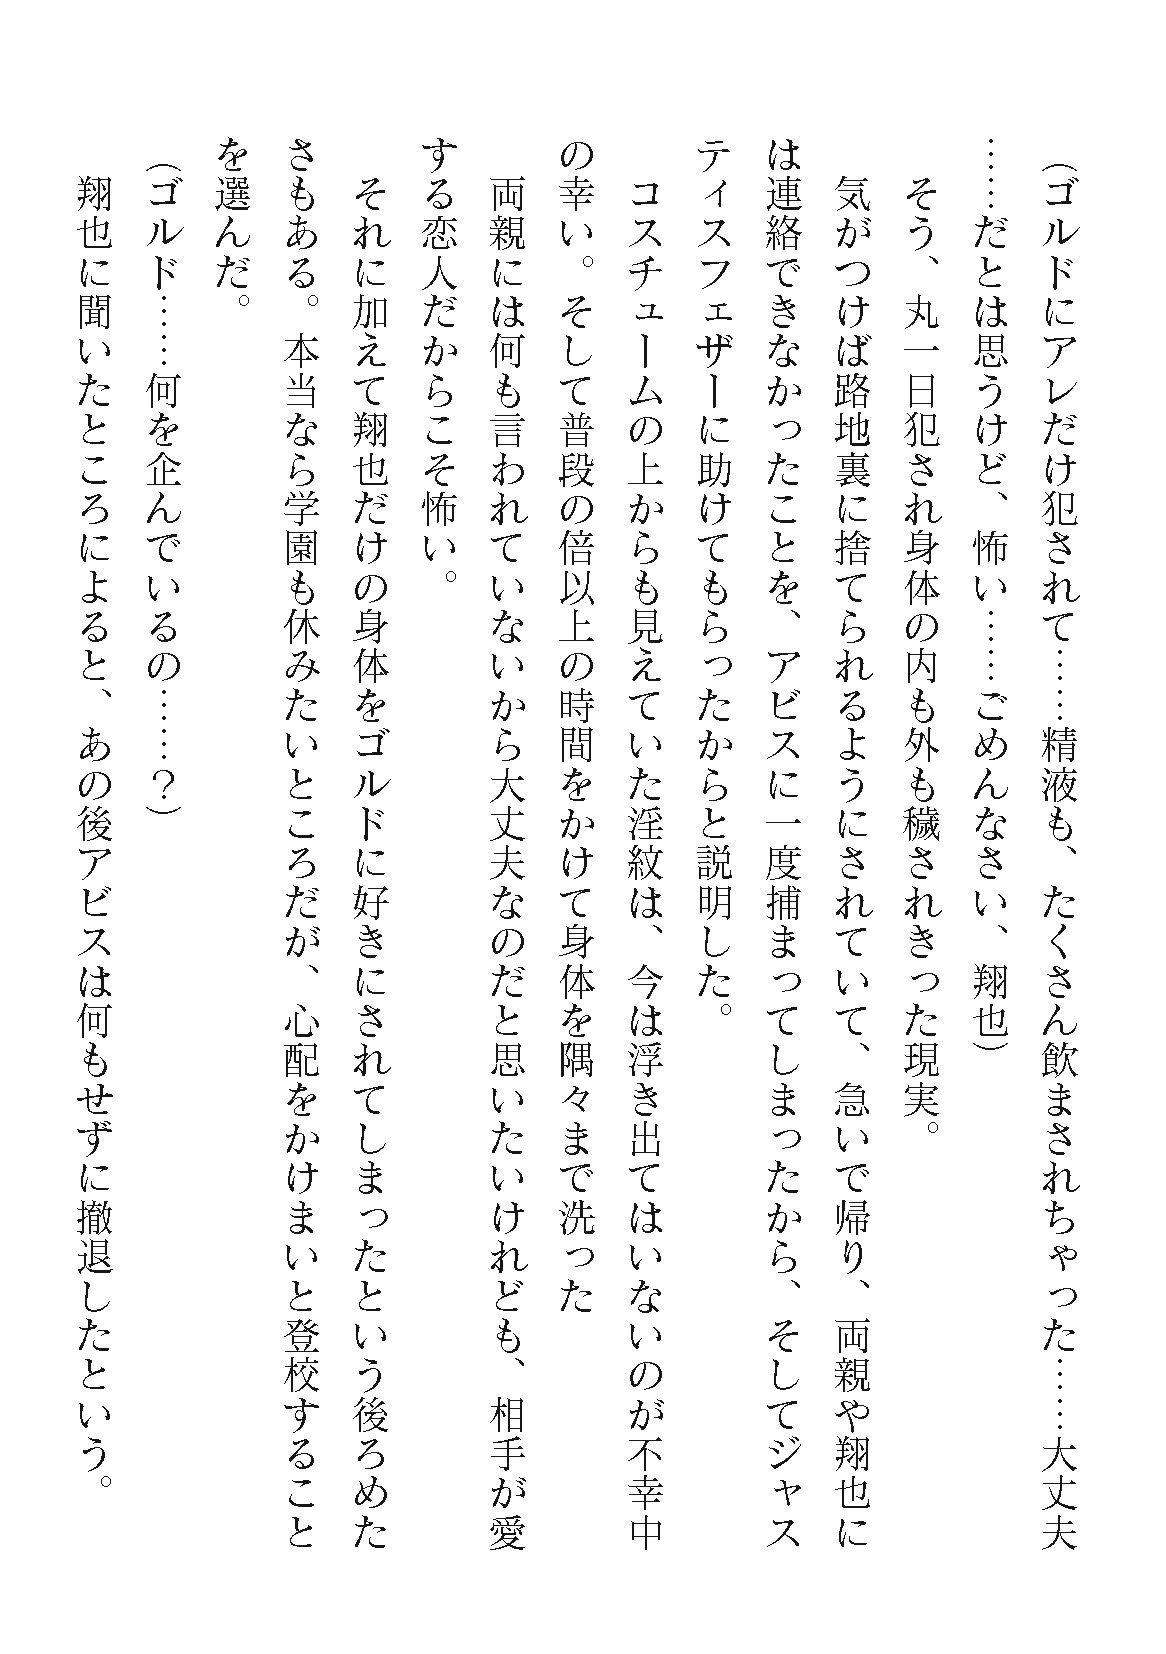 （ゴルドにアレだけ犯されて……精液も、たくさん飲まされちゃった……大丈夫
……だとは思うけど、怖い……ごめんなさい、翔也）
そう、丸一日犯され身体の内も外も穢されきった現実。
気がつけば路地裏に捨てられるようにされていて、急いで帰り、両親や翔也に
は連絡できなかったことを、アビスに一度捕まってしまったから、そしてジャス
ティスフェザーに助けてもらったからと説明した。
コスチュームの上からも見えていた淫紋は、今は浮き出てはいないのが不幸中
の幸い。そして普段の倍以上の時間をかけて身体を隅々まで洗った
両親には何も言われていないから大丈夫なのだと思いたいけれども、相手が愛
する恋人だからこそ怖い。
それに加えて翔也だけの身体をゴルドに好きにされてしまったという後ろめた
さもある。本当なら学園も休みたいところだが、心配をかけまいと登校すること
を選んだ。
（ゴルド……何を企んでいるの……？）
翔也に聞いたところによると、あの後アビスは何もせずに撤退したという。